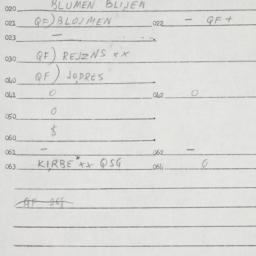 020 BLUMEN BLIJEN
021 QF) BLOJMEN 022 - QF+
023 -
030 QF) REJZNS xx
040 QF) JOPRES
041 0 042 0
050 0
060 $
061 - 062 -
063 KIRBE*xx QSG 064 0